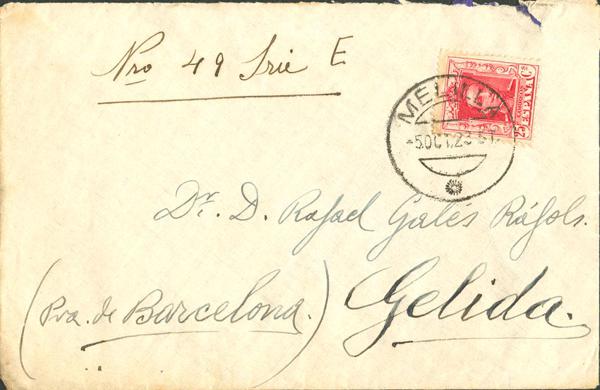 Nro 49 Srie E
MELILLA
-5 OCT. 23
Dr. D. Rafael Galés Ráfols.
(Pva. de Barcelona) Gelida.